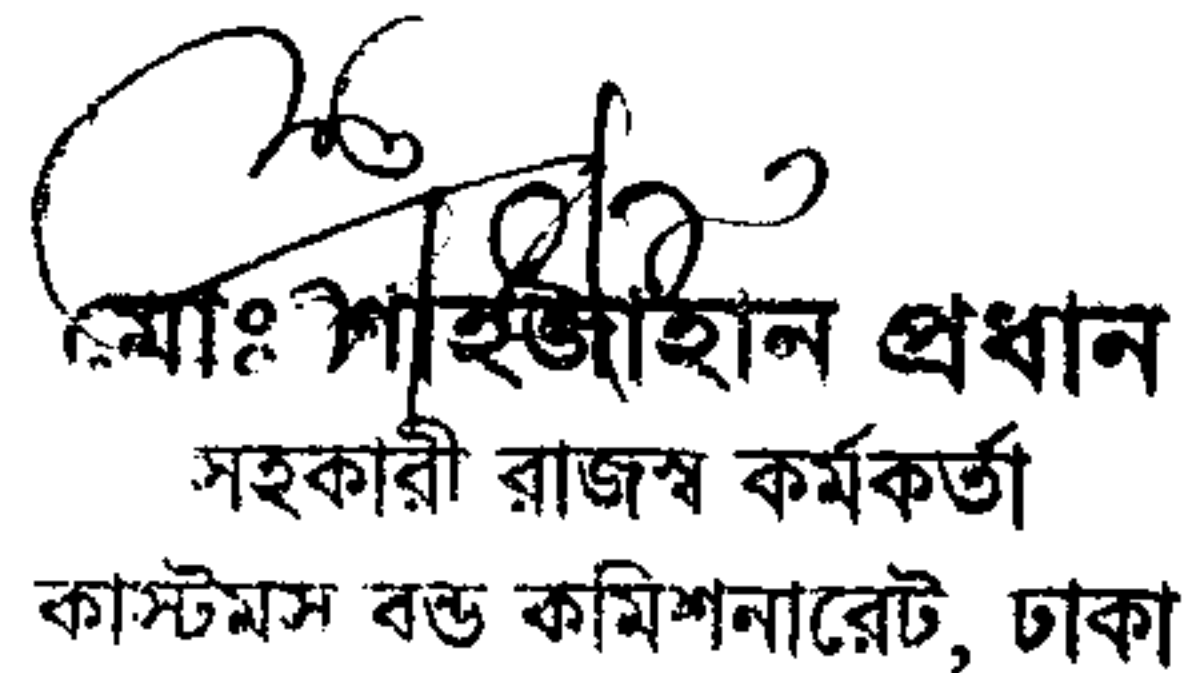 মোঃ শাহজাহান প্রধান
সহকারী রাজস্ব কর্মকর্তা
কাস্টমস বন্ড কমিশনারেট, ঢাকা